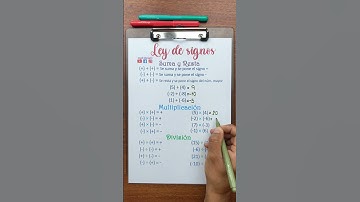 Ley de signos
Suma y Resta
(+) + (+) = Se suma y se pone el signo +
(-) + (-) = Se suma y se pone el signo -
(+) + (-) = Se resta y se pone el signo del núm. mayor
(5) + (4) = 9
(-2) + (-8) = -10
(1) + (-6) = -5
Multiplicación
(+) × (+) = +
(-) × (-) = +
(+) × (-) = -
(-) × (+) = -
(5) × (4) = 20
(-2) × (-6) =
(7) × (-3)
División
(+) ÷ (+) = +
(-) ÷ (-) = +
(+) ÷ (-) = -
(-) ÷ (+) = -